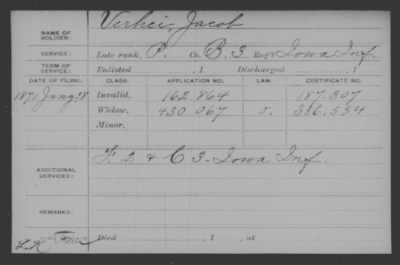 NAME OF SOLDIER: Verhei, Jacob
SERVICE: Late rank, P. Co. B. 3 Reg't Iowa Inf.
TERM OF SERVICE: Enlisted , 1 Discharged , 1
DATE OF FILING. CLASS. APPLICATION NO. LAW. CERTIFICATE NO.
1871 Invalid, 162.864 187.307
Widow, 430.067 J. 336.554
Minor,
ADDITIONAL SERVICES: F. 2 & C 3- Iowa Inf.
REMARKS:
Died , 1 , at